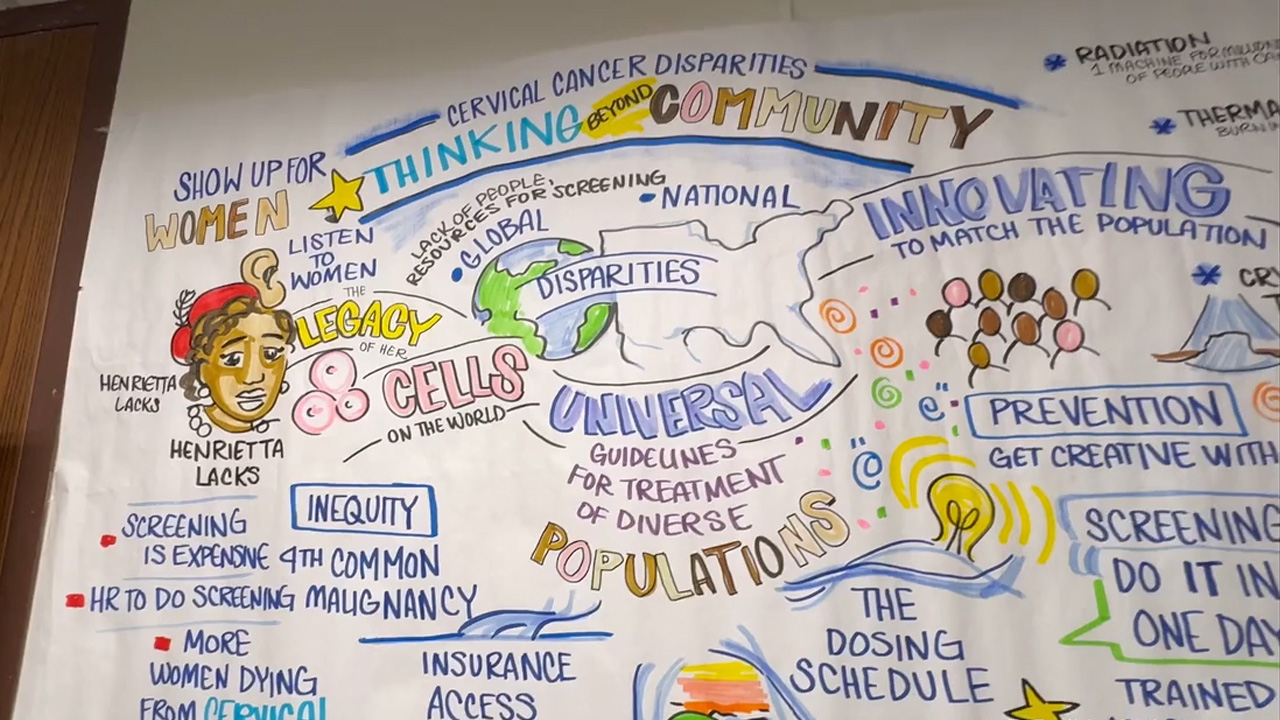 CERVICAL CANCER DISPARITIES
THINKING BEYOND COMMUNITY
SHOW UP FOR
WOMEN
LISTEN
TO
WOMEN
HENRIETTA
LACKS
HENRIETTA
LACKS
THE
LEGACY
OF HER
CELLS
ON THE WORLD
LACK OF PEOPLE,
RESOURCES FOR SCREENING
GLOBAL
NATIONAL
DISPARITIES
UNIVERSAL
GUIDELINES
FOR TREATMENT
OF DIVERSE
POPULATIONS
RADIATION
1 MACHINE FOR
OF PEOPLE WITH
INNOVATING
TO MATCH THE POPULATION
PREVENTION
GET CREATIVE WITH
SCREENING
DO IT IN
ONE DAY
TRAINED
THE
DOSING
SCHEDULE
INEQUITY
4TH COMMON
MALIGNANCY
SCREENING
IS EXPENSIVE
HR TO DO SCREENING
MORE
WOMEN DYING
FROM CERVICAL
INSURANCE
ACCESS